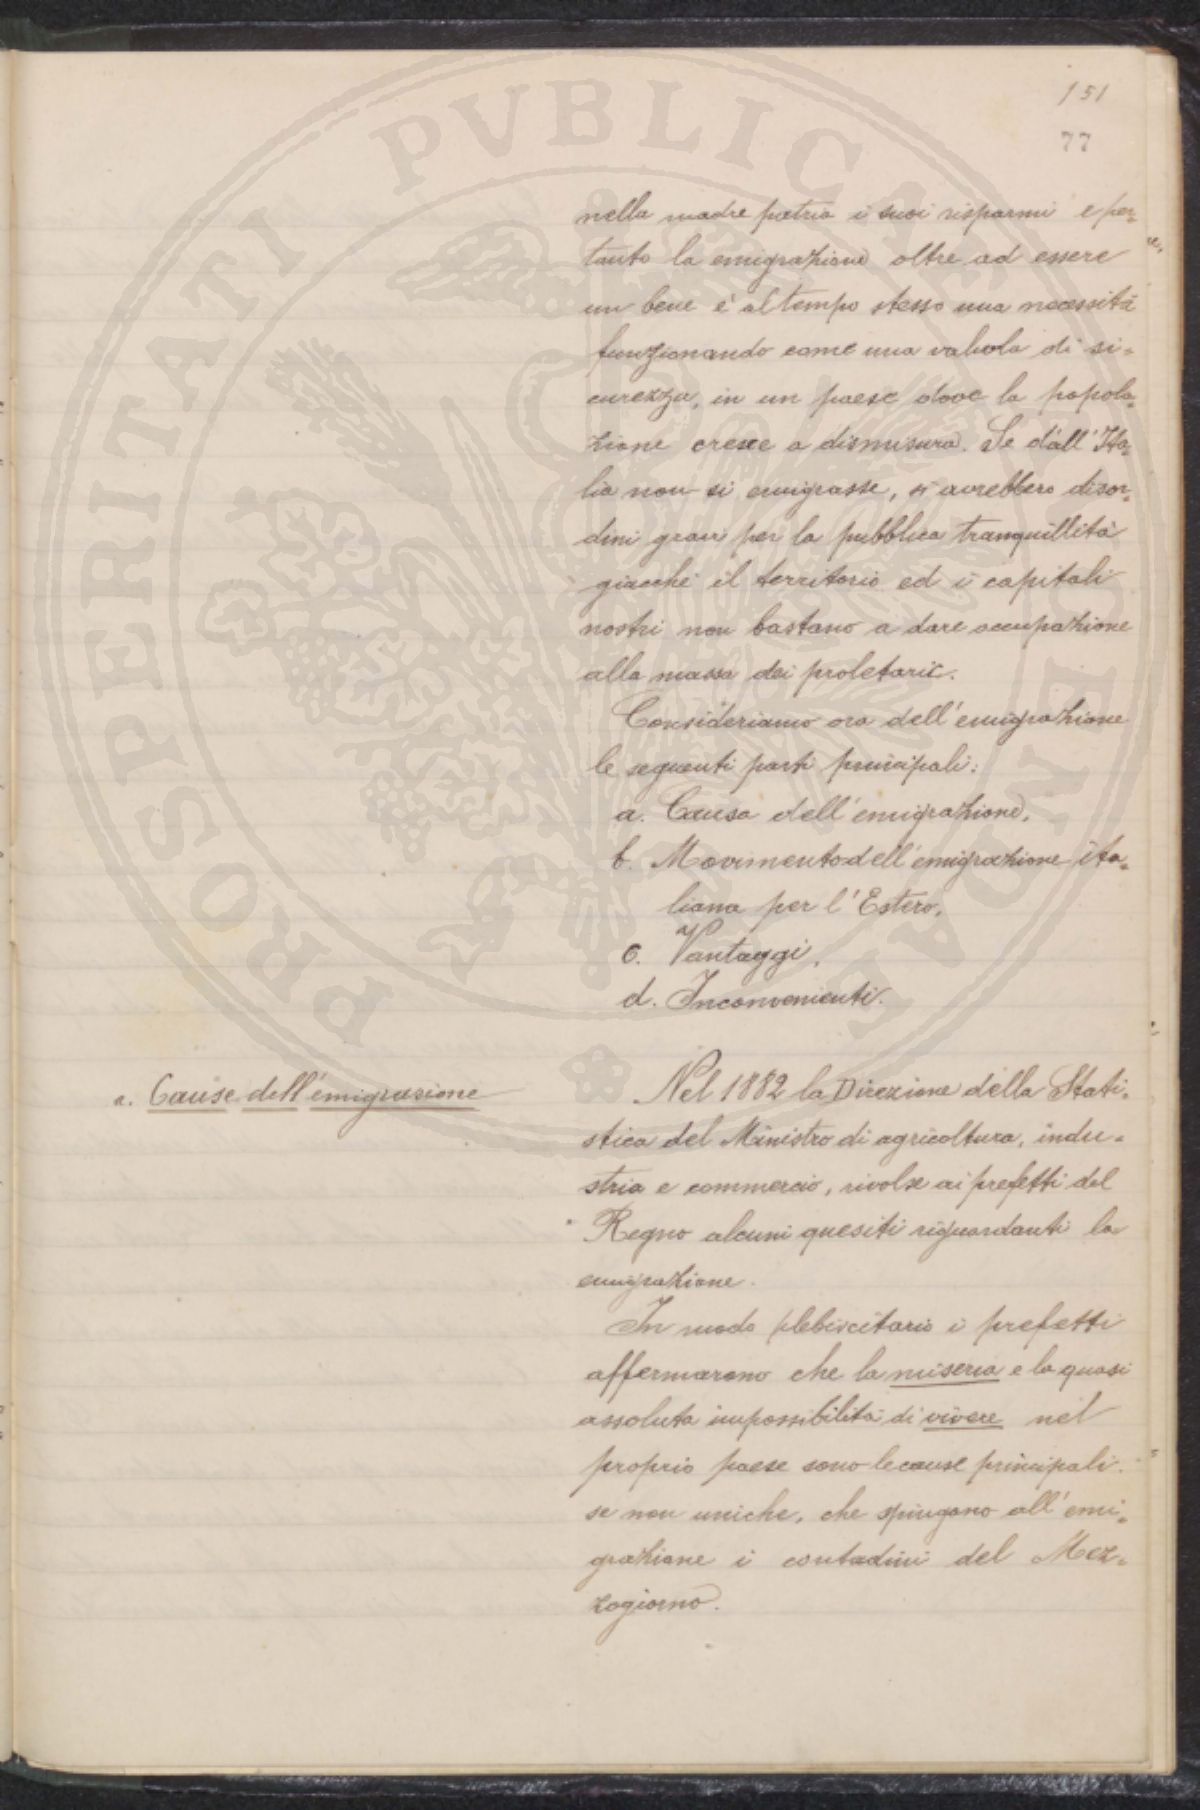 151
77
nella madre patria i suoi risparmi e per=
tanto la emigrazione oltre ad essere
un bene è al tempo stesso una necessità
funzionando come una valvola di si=
curezza, in un paese dove la popola=
zione cresce a dismisura. Se dall'Ita=
lia non si emigrasse, si avrebbero disor=
dini gravi per la pubblica tranquillità
giacchè il territorio ed i capitali
nostri non bastano a dare occupazione
alla massa dei proletarii.
Consideriamo ora dell'emigrazione
le seguenti parti principali:
a. Causa dell'emigrazione,
b. Movimento dell'emigrazione ita=
liana per l'Estero,
c. Vantaggi,
d. Inconvenienti.
a. Cause dell'emigrazione
Nel 1882 la Direzione della Stati=
stica del Ministro di agricoltura, indu=
stria e commercio, rivolse ai prefetti del
Regno alcuni quesiti riguardanti la
emigrazione.
In modo plebiscitario i prefetti
affermarono che la miseria e la quasi
assoluta impossibilità di vivere nel
proprio paese sono le cause principali.
se non uniche, che spingono all'emi=
grazione i contadini del Mez=
zogiorno.
PROSPERITATI PVBLICAE